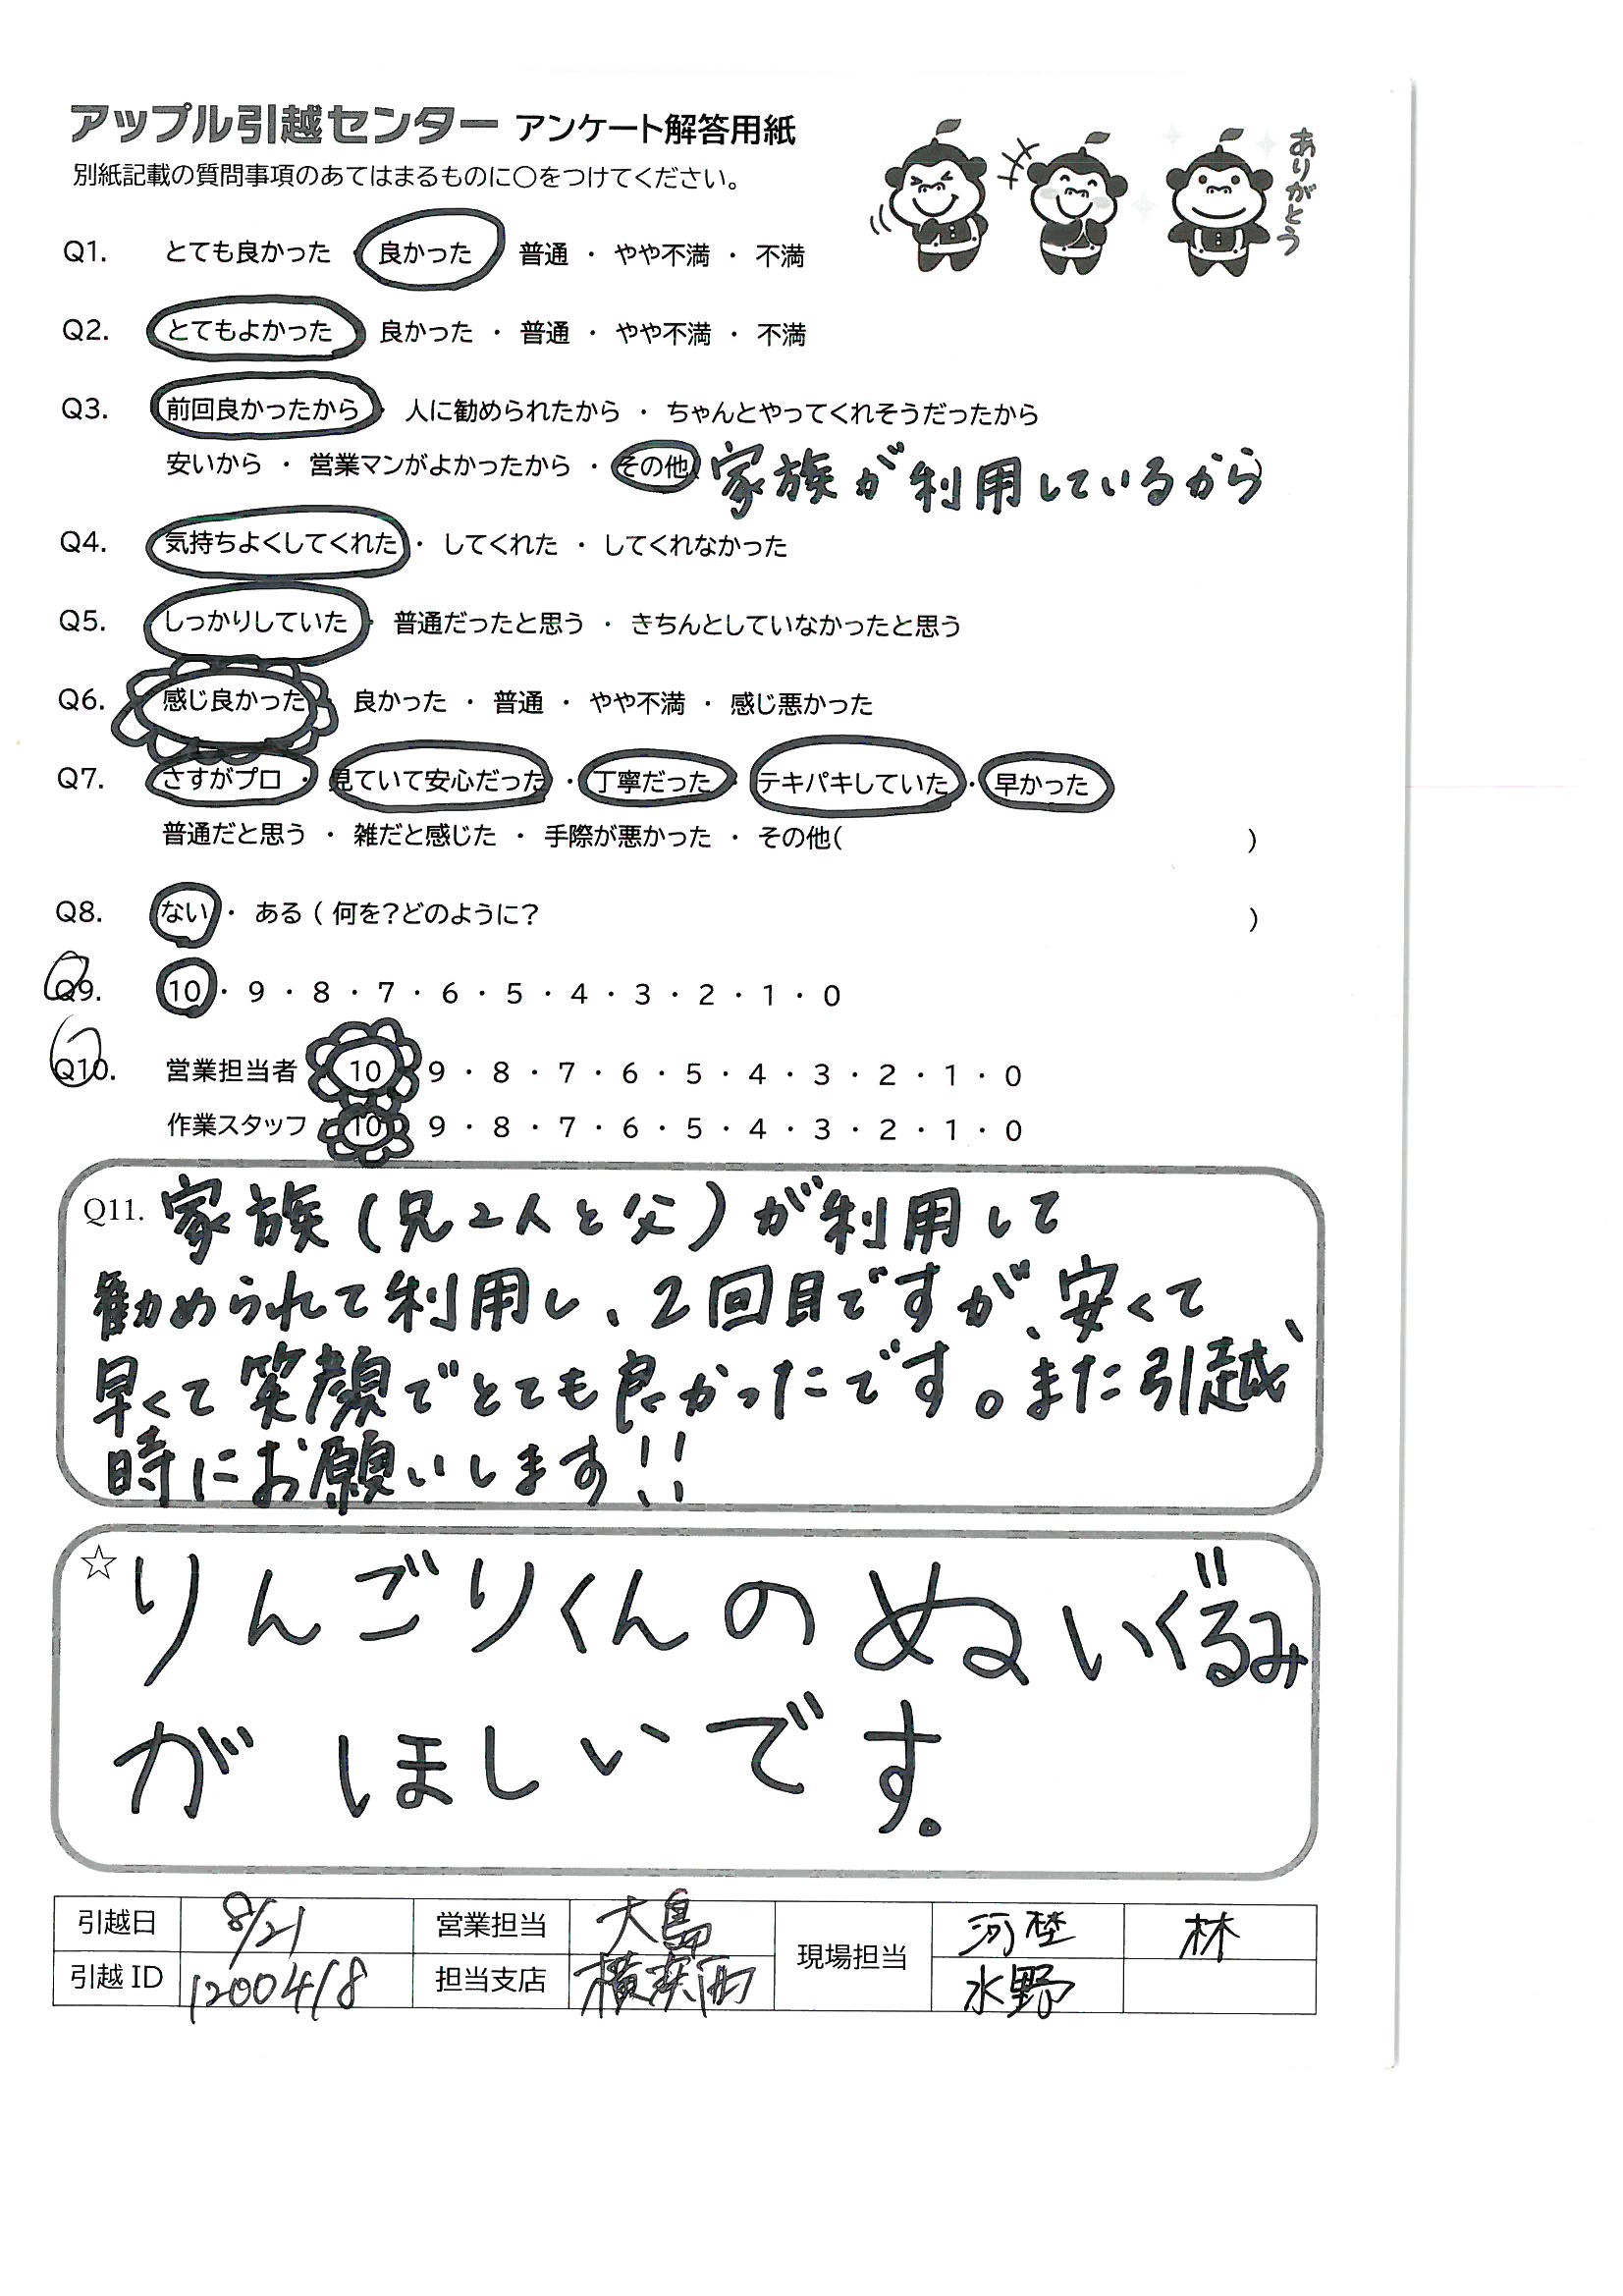 アップル引越センター アンケート解答用紙
別紙記載の質問事項のあてはまるものに〇をつけてください。
ありがとう
Q1. とても良かった 良かった 普通 ・ やや不満 ・ 不満
Q2. とてもよかった 良かった ・ 普通 ・ やや不満 ・ 不満
Q3. 前回良かったから・ 人に勧められたから ・ ちゃんとやってくれそうだったから
安いから ・ 営業マンがよかったから ・ その他( 家族が利用しているから
Q4. 気持ちよくしてくれた ・ してくれた ・ してくれなかった
Q5. しっかりしていた ・ 普通だったと思う ・ きちんとしていなかったと思う
Q6. 感じ良かった ・ 良かった ・ 普通 ・ やや不満 ・ 感じ悪かった
Q7. さすがプロ ・ 見ていて安心だった ・ 丁寧だった ・ テキパキしていた ・ 早かった
普通だと思う ・ 雑だと感じた ・ 手際が悪かった ・ その他( )
Q8. ない ・ ある ( 何を?どのように? )
Q9. 10 ・ 9 ・ 8 ・ 7 ・ 6 ・ 5 ・ 4 ・ 3 ・ 2 ・ 1 ・ 0
Q10. 営業担当者 10 ・ 9 ・ 8 ・ 7 ・ 6 ・ 5 ・ 4 ・ 3 ・ 2 ・ 1 ・ 0
作業スタッフ 10 ・ 9 ・ 8 ・ 7 ・ 6 ・ 5 ・ 4 ・ 3 ・ 2 ・ 1 ・ 0
Q11. 家族(兄2人と父)が利用して
勧められて利用し、2回目ですが、安くて、
早くて笑顔でとても良かったです。また引越
時にお願いします!!
☆ りんごりくんのぬいぐるみ
がほしいです。
引越日 8/21 営業担当 大島 現場担当 林
引越ID 1200418 担当支店 横浜西 水野